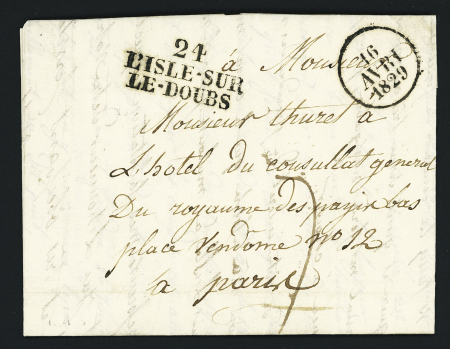 24
L'ISLE-SUR-
LE-DOUBS
16
AVRIL
1829
à Monsieur
Monsieur thuret a
L'hotel du consullat general
Du royaume des payix bas
place Vendôme n° 12
a paris
7